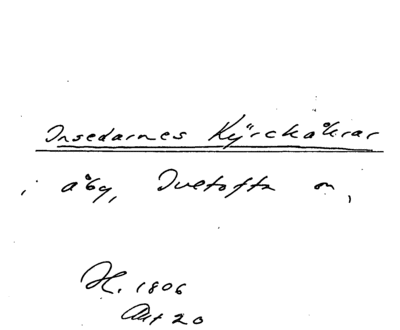 Insedarnes Kyrckåkrar
i åby, Ivetofta m,
H. 1806
Akt 20